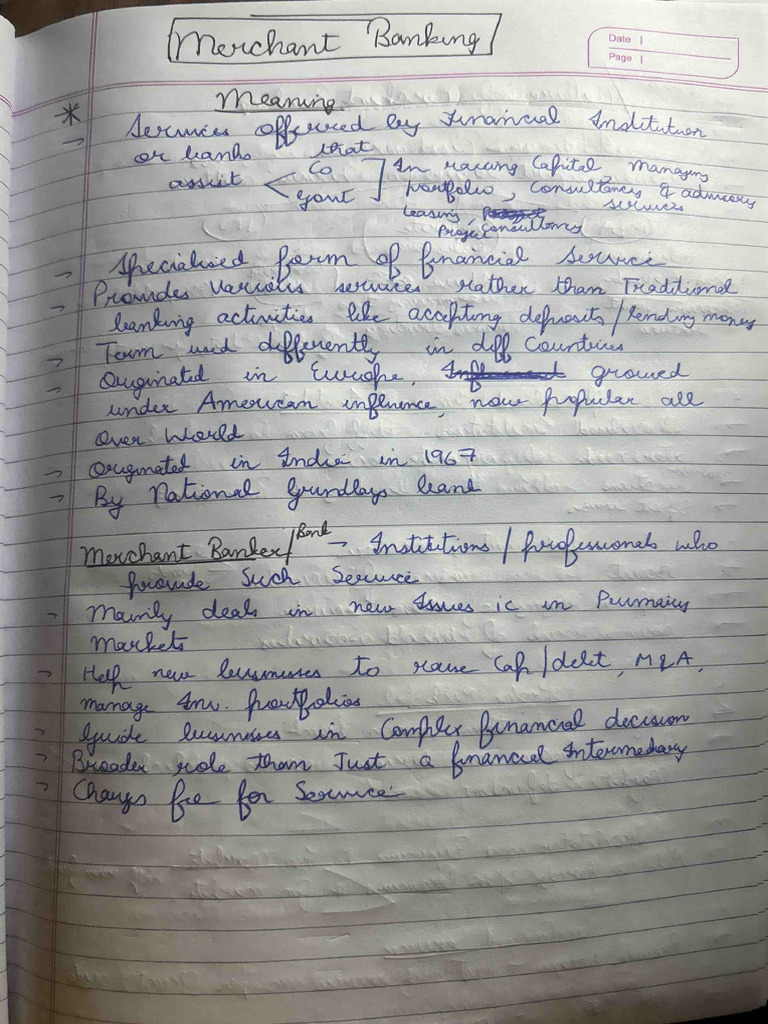 Merchant Banking
Date |
Page |
Meaning
* → Services offerred by Financial Institution
or banks that
assist < Co
Govt ] In raising Capital, Managing
portfolio, Consultancy & advisory
services
leasing,
Project Consultancy
→ Specialised form of financial service
→ Provides various services rather than Traditional
banking activities like accepting deposits/lending money
→ Term used differently in diff Countries
→ Originated in Europe, growed
under American influence, now popular all
over World
→ Originated in India in 1967
→ By National Grundlays bank
Merchant Banker/Bank → Institutions/professionals who
provide Such Service
→ Mainly deals in new Issues ie in Primary
Markets
→ Help new businesses to raise Cap/debt, M&A,
manage Inv. portfolios
→ Guide businesses in Complex financial decision
→ Broader role than Just a financial Intermediary
→ Charges fee for Service